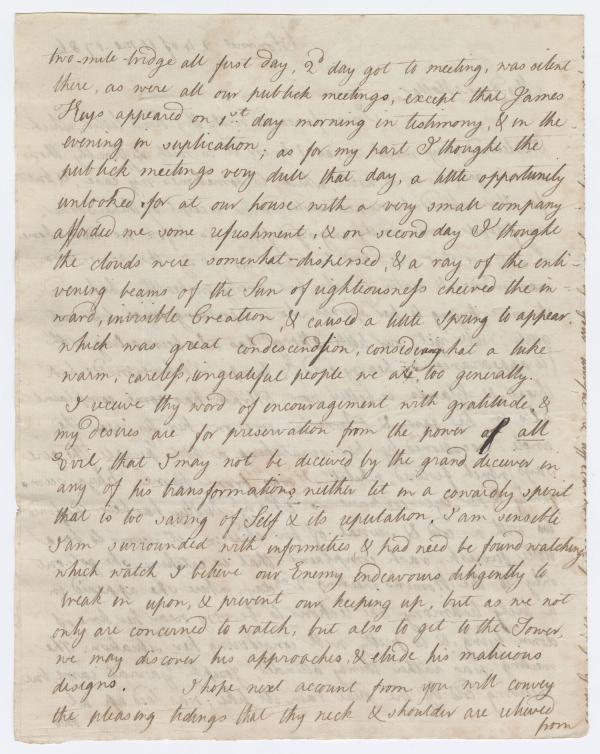 two-mile-bridge all first day, 2d day got to meeting, was silent
there, as were all our publick meetings, except that James
Keys appeared on 1st day morning in testimony, & in the
evening in suplication; as for my part I thought the
publick meetings very dull that day, a little opportunity
unlooked for at our house with a very small company
afforded me some refreshment, & on second day I thought
the clouds were somewhat dispersed, & a ray of the enli-
vening beams of the Sun of righteousness cheired the in-
ward, invisible Creation, & caused a little Spring to appear.
which was great condescendsion, considering what a luke
warm, careless, ungrateful people we are, too generally.
I receive thy word of encouragement with gratitude, &
my desires are for preservation from the power of all
Evil, that I may not be deceived by the grand deceiver in
any of his transformations, neither let in a cowardly spirit
that is too saving of Self & its reputation. I am sensible
I am surrounded with infirmities & had need be found watching
which watch I believe our Enemy endeavours diligently to
break in upon, & prevent our keeping up, but as we not
only are concerned to watch, but also to get to the Tower,
we may discover his approaches, & elude his malicious
designs. I hope next account from you will convey
the pleasing tidings that thy neck & shoulder are relieved
from